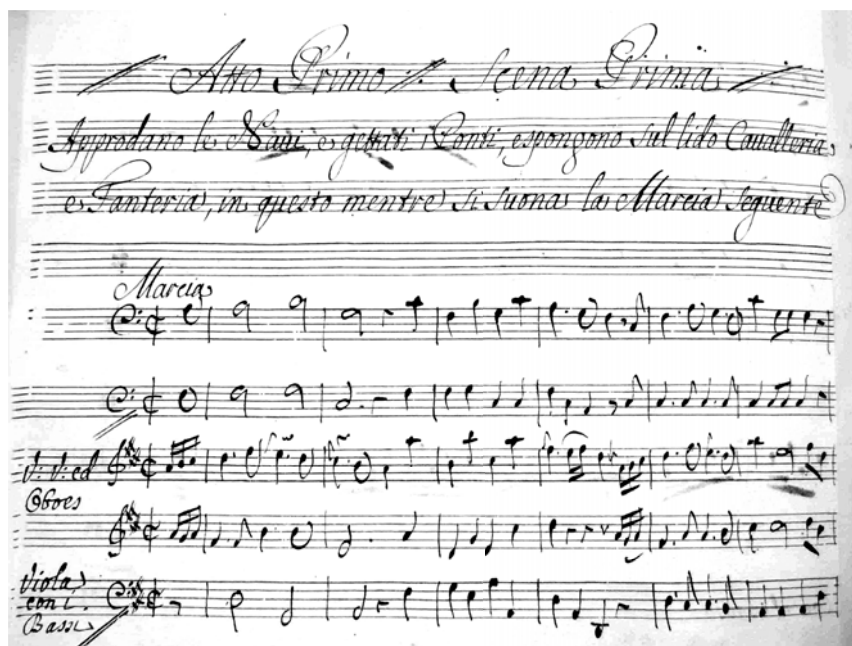 Atto Primo Scena Prima
Approdano le Navi, e gettati i Ponti, espongono sul lido Cavalleria
e Fanteria, in questo mentre si suona la Marcia seguente
Marcia
V: V: ed
Oboes
Viola
con i.
Bassi